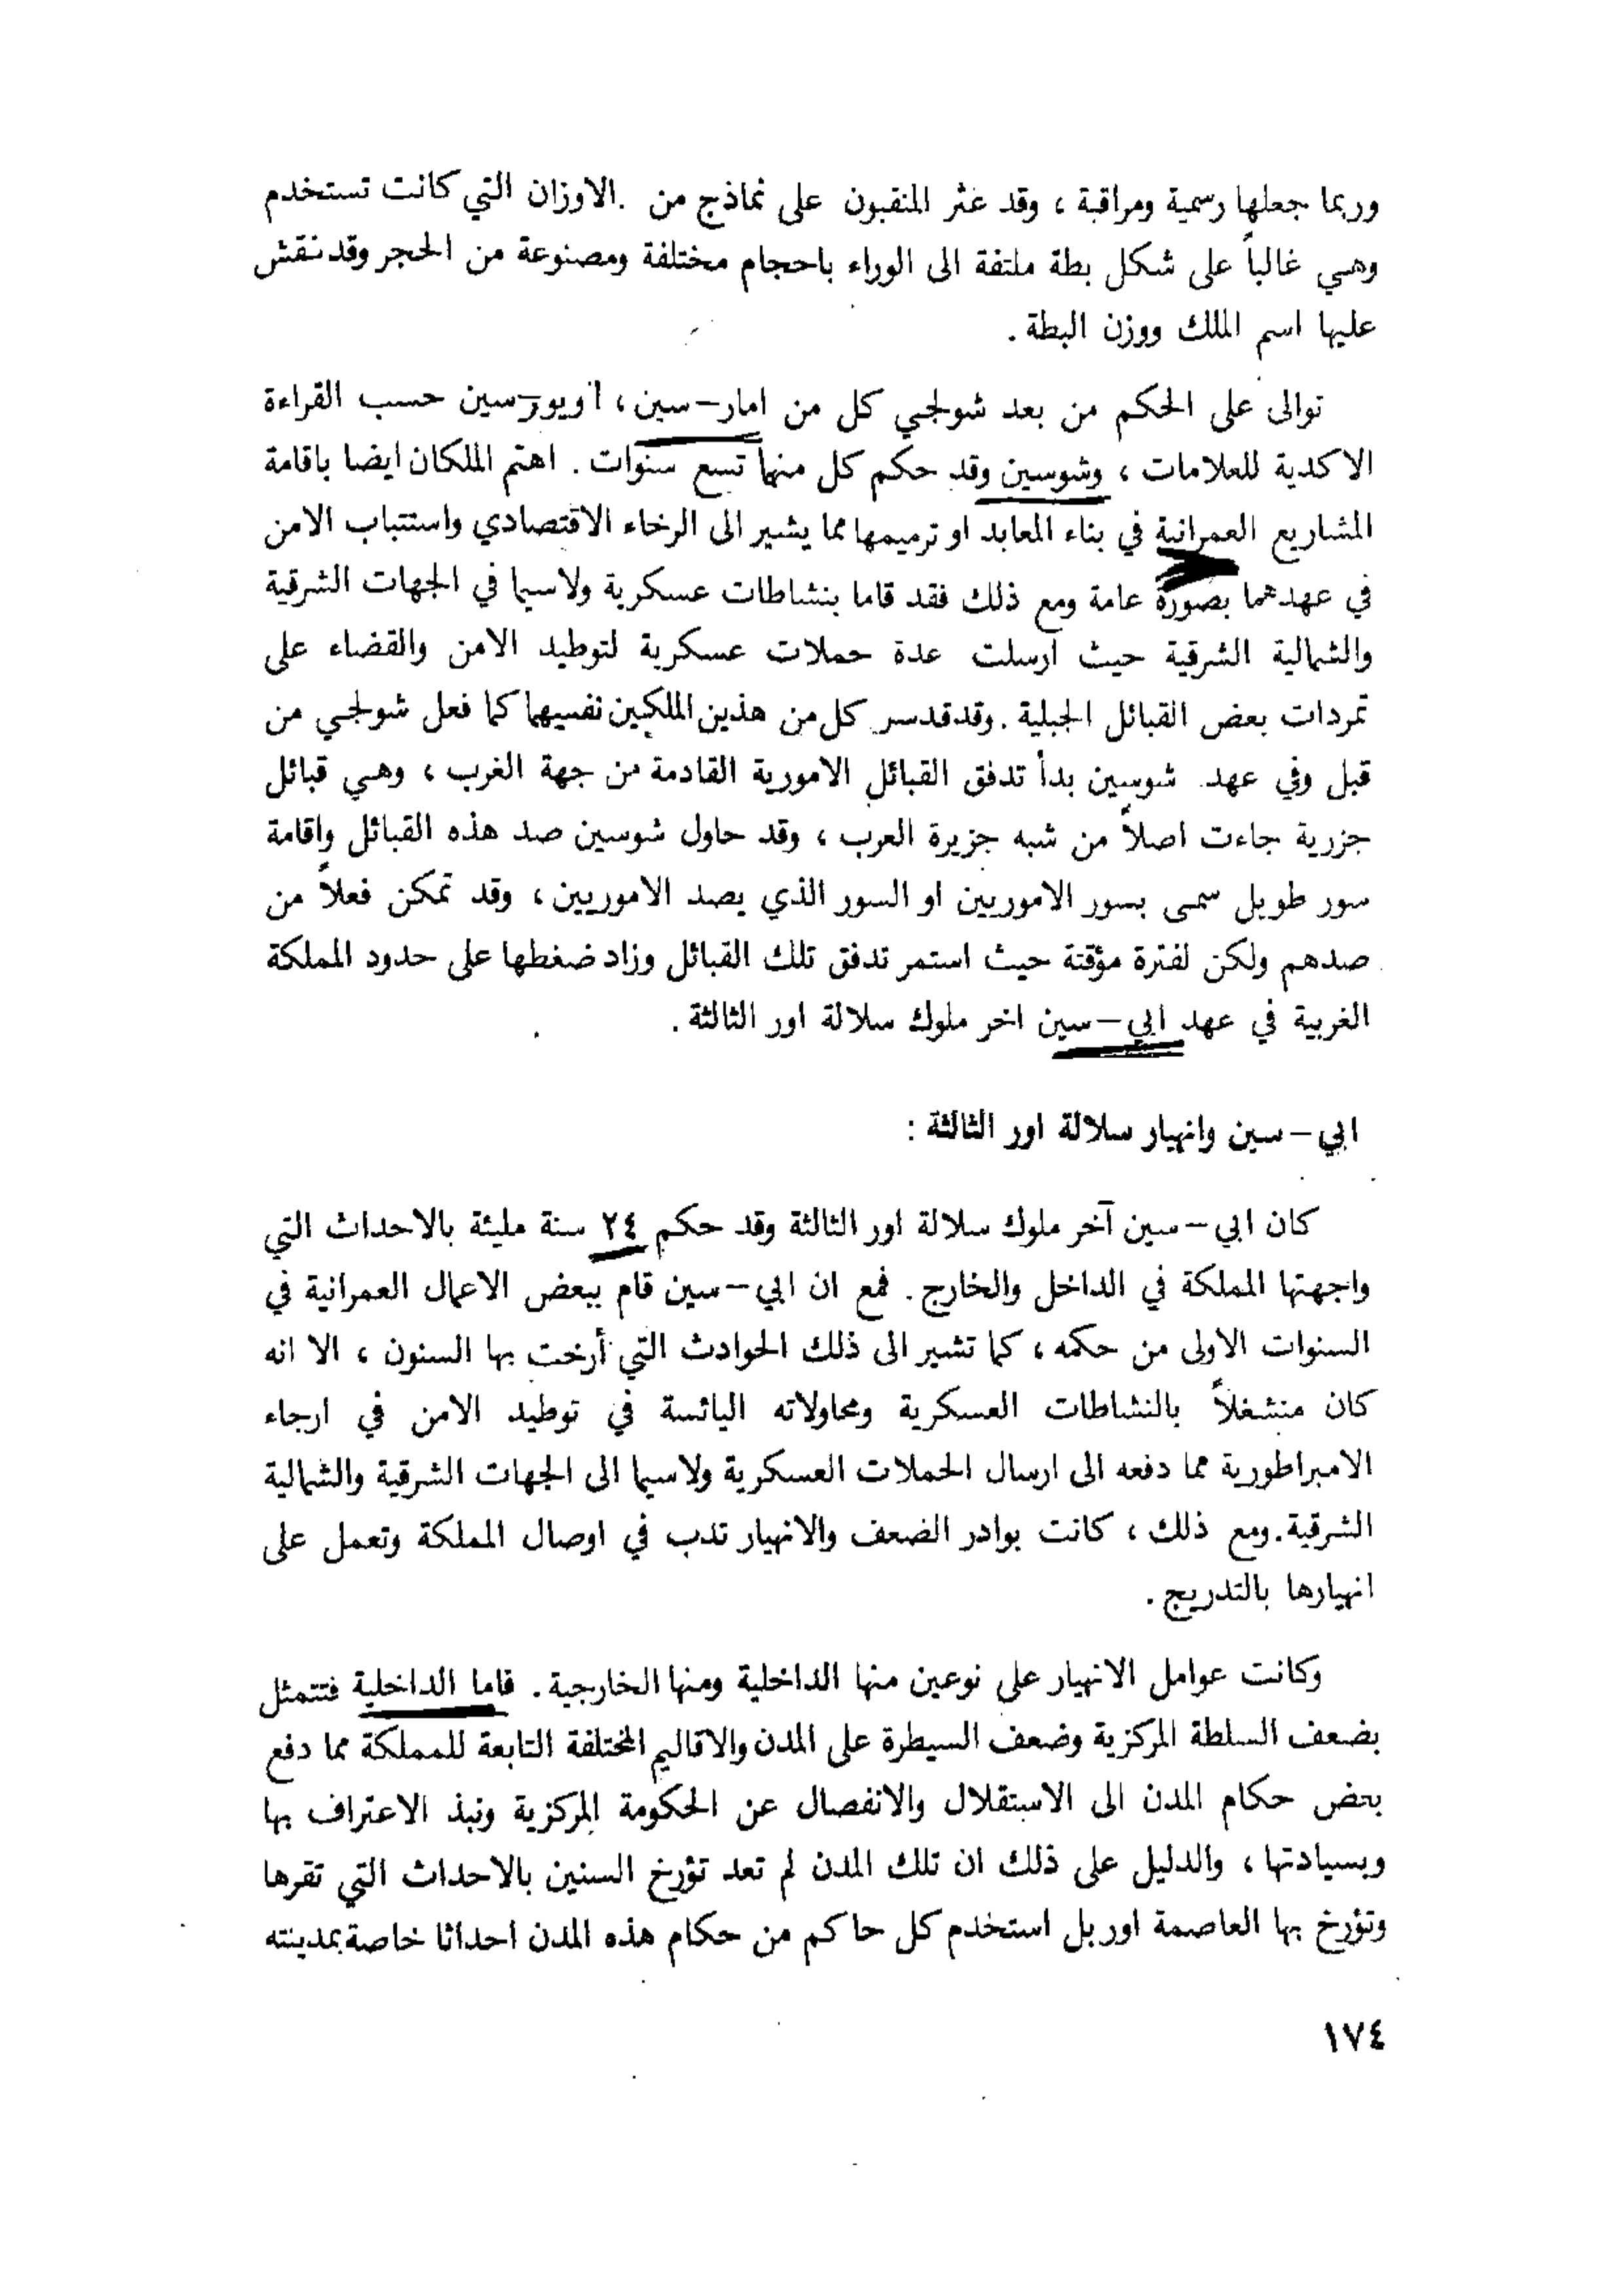 وربما جعلها رسمية ومراقبة ، وقد عثر المنقبون على نماذج من .الاوزان التي كانت تستخدم
وهي غالباً على شكل بطة ملتفة الى الوراء باحجام مختلفة ومصنوعة من الحجر وقد نقش
عليها اسم الملك ووزن البطة .
توالى على الحكم من بعد شولجي كل من امار–سين ، اوبور–سين حسب القراءة
الاكدية للعلامات ، وشوسين وقد حكم كل منهما تسع سنوات . اهتم الملكان ايضا باقامة
المشاريع العمرانية في بناء المعابد او ترميمها مما يشير الى الرخاء الاقتصادي واستتباب الامن
في عهدهما بصورة عامة ومع ذلك فقد قاما بنشاطات عسكرية ولاسيما في الجهات الشرقية
والشمالية الشرقية حيث ارسلت عدة حملات عسكرية لتوطيد الامن والقضاء على
تمردات بعض القبائل الجبلية . وقد قدس كل من هذين الملكين نفسيهما كما فعل شولجي من
قبل وفي عهد شوسين بدأ تدفق القبائل الامورية القادمة من جهة الغرب ، وهي قبائل
جزرية جاءت اصلاً من شبه جزيرة العرب ، وقد حاول شوسين صد هذه القبائل واقامة
سور طويل سمى بسور الاموريين او السور الذي يصد الاموريين ، وقد تمكن فعلاً من
صدهم ولكن لفترة مؤقتة حيث استمر تدفق تلك القبائل وزاد ضغطها على حدود المملكة
الغربية في عهد ابي–سين اخر ملوك سلالة اور الثالثة .
ابي–سين وانهيار سلالة اور الثالثة :
كان ابي–سين آخر ملوك سلالة اور الثالثة وقد حكم ٢٤ سنة مليئة بالاحداث التي
واجهتها المملكة في الداخل والخارج . فمع ان ابي–سين قام ببعض الاعمال العمرانية في
السنوات الاولى من حكمه ، كما تشير الى ذلك الحوادث التي أرخت بها السنون ، الا انه
كان منشغلاً بالنشاطات العسكرية ومحاولاته اليائسة في توطيد الامن في ارجاء
الامبراطورية مما دفعه الى ارسال الحملات العسكرية ولاسيما الى الجهات الشرقية والشمالية
الشرقية. ومع ذلك ، كانت بوادر الضعف والانهيار تدب في اوصال المملكة وتعمل على
انهيارها بالتدريج .
وكانت عوامل الانهيار على نوعين منها الداخلية ومنها الخارجية . فاما الداخلية فتتمثل
بضعف السلطة المركزية وضعف السيطرة على المدن والاقاليم المختلفة التابعة للمملكة مما دفع
بعض حكام المدن الى الاستقلال والانفصال عن الحكومة المركزية ونبذ الاعتراف بها
وبسيادتها ، والدليل على ذلك ان تلك المدن لم تعد تؤرخ السنين بالاحداث التي تقرها
وتؤرخ بها العاصمة اور بل استخدم كل حاكم من حكام هذه المدن احداثا خاصة بمدينته
١٧٤